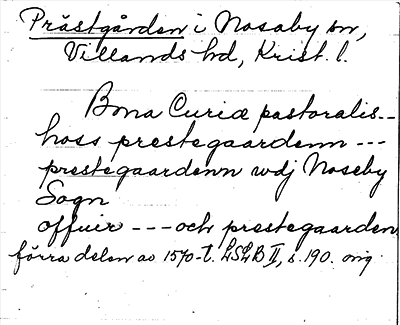 Prästgården i Nosaby sn,
Villands hd, Krist. l.
Bona Curiæ pastoralis --
hoss prestegaardenn ---
prestegaardenn wdj Noseby
Sogn
offuir --- och prestegaarden
förra delen av 1570-t. LSLB II, s. 190. orig.